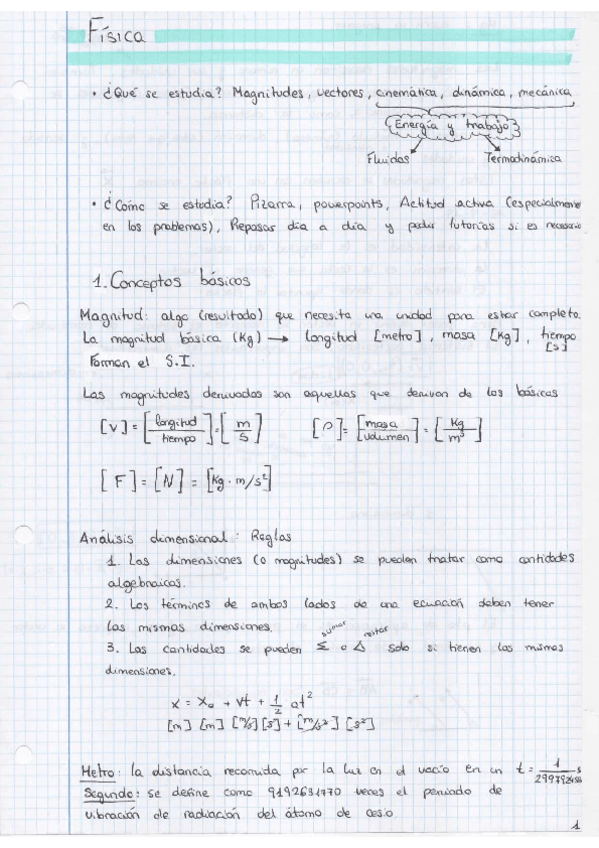 Física
• ¿Qué se estudia? Magnitudes, vectores, cinemática, dinámica, mecánica
Energía y trabajo
Fluidos Termodinámica
• ¿Cómo se estudia? Pizarra, powerpoints, Actitud activa (especialmente
en los problemas), Repasar día a día y pedir tutorías si es necesario
1. Conceptos básicos
Magnitud: algo (resultado) que necesita una unidad para estar completo.
La magnitud básica (Kg) → longitud [metro], masa [Kg], tiempo
[s]
Forman el S.I.
Las magnitudes derivadas son aquellas que derivan de las básicas
[V] = [longitud/tiempo] = [m/s] [ρ] = [masa/volumen] = [Kg/m³]
[F] = [N] = [Kg · m/s²]
Análisis dimensional: Reglas
1. Las dimensiones (o magnitudes) se pueden tratar como cantidades
algebraicas.
2. Los términos de ambos lados de una ecuación deben tener
las mismas dimensiones.
sumar restar
3. Las cantidades se pueden Σ o Δ solo si tienen las mismas
dimensiones.
x = x₀ + vt + 1/2 at²
[m] [m] [m/s] [s] + [m/s²] [s²]
Metro: la distancia recorrida por la luz en el vacío en un t = 1/299792458 s
Segundo: se define como 9192631770 veces el periodo de
vibración de radiación del átomo de cesio.
1